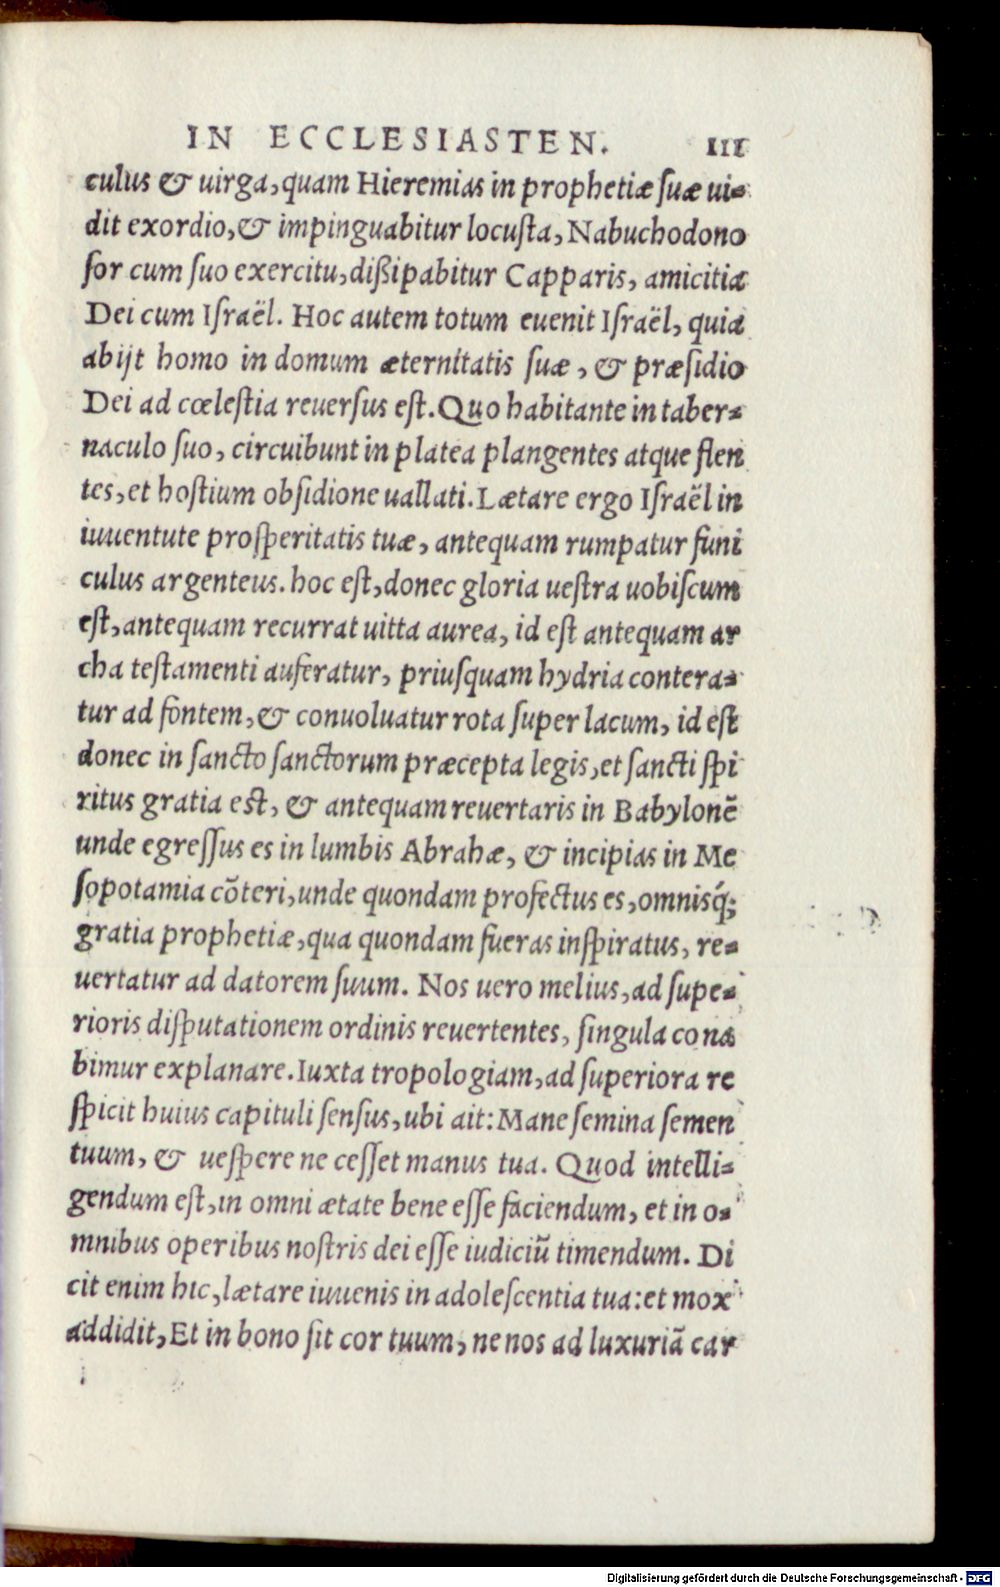 IN ECCLESIASTEN. III
culus & uirga, quam Hieremias in prophetiæ ſuæ ui⸗
dit exordio, & impinguabitur locuſta, Nabuchodono
ſor cum ſuo exercitu, dißipabitur Capparis, amicitia
Dei cum Iſraël. Hoc autem totum euenit Iſraël, quia
abijt homo in domum æternitatis ſuæ, & præſidio
Dei ad cœleſtia reuerſus eſt. Quo habitante in taber⸗
naculo ſuo, circuibunt in platea plangentes atque flen
tes, et hoſtium obſidione uallati. Lætare ergo Iſraël in
iuuentute proſperitatis tuæ, antequam rumpatur funi
culus argenteus. hoc eſt, donec gloria ueſtra uobiſcum
eſt, antequam recurrat uitta aurea, id eſt antequam ar
cha teſtamenti auferatur, priuſquam hydria contera⸗
tur ad fontem, & conuoluatur rota ſuper lacum, id eſt
donec in ſancto ſanctorum præcepta legis, et ſancti ſpi
ritus gratia eſt, & antequam reuertaris in Babylonē
unde egreſſus es in lumbis Abrahæ, & incipias in Me
ſopotamia cōteri, unde quondam profectus es, omnisq́;
gratia prophetiæ, qua quondam fueras inſpiratus, re⸗
uertatur ad datorem ſuum. Nos uero melius, ad ſupe⸗
rioris diſputationem ordinis reuertentes, ſingula cona
bimur explanare. Iuxta tropologiam, ad ſuperiora re
ſpicit huius capituli ſenſus, ubi ait: Mane ſemina ſemen
tuum, & ueſpere ne ceſſet manus tua. Quod intelli⸗
gendum eſt, in omni ætate bene eſſe faciendum, et in o⸗
mnibus operibus noſtris dei eſſe iudiciū timendum. Di
cit enim hic, lætare iuuenis in adoleſcentia tua: et mox
addidit, Et in bono ſit cor tuum, ne nos ad luxuriā car
Digitalisierung gefördert durch die Deutsche Forschungsgemeinschaft - DFG